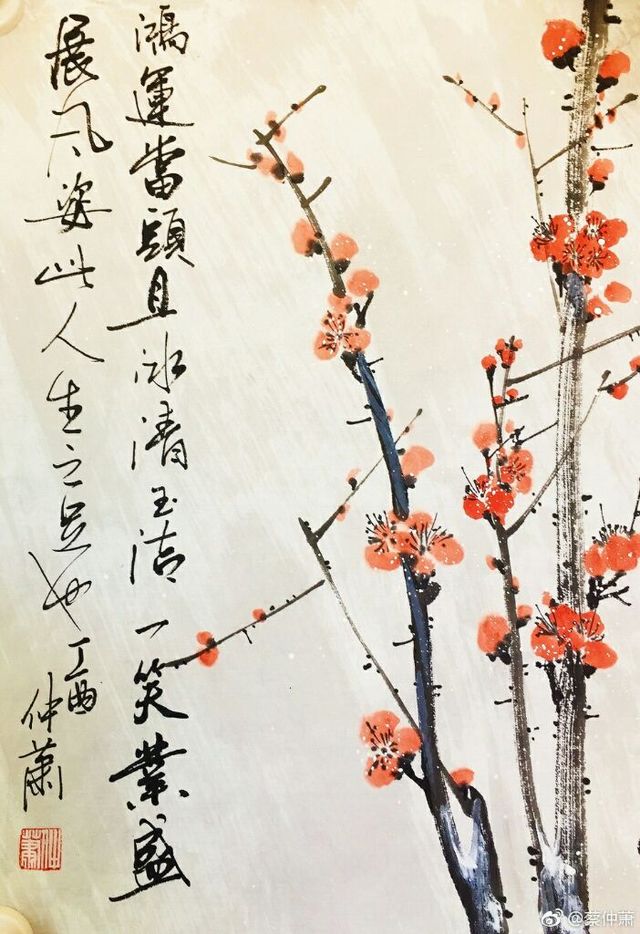 鴻運當頭且冰清玉潔一笑業盛
展風姿此人生之足也丁酉
仲蕭
仲蕭
@蔡仲萧